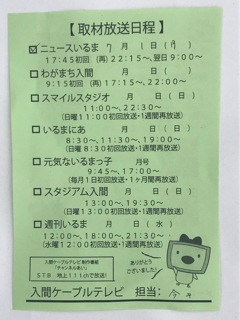 【取材放送日程】
☑ニュースいるま 7月1日(月)
17:45初回 (再)22:15~、翌日9:00~
□わがまち入間 月 日( )
9:15初回 (再)17:15~、22:00~
□スマイルスタジオ 月 日(日)
11:00~、22:30~
(日曜11:00初回放送・1週間再放送)
□いるまにあ 月 日(日)
8:30~、11:30~、19:00~
(日曜8:30初回放送・1週間再放送)
□元気ないるまっ子 月号
9:45~、17:00~
(毎月1日初回放送・1ヶ月間再放送)
□スタジアム入間 月 日(日)
13:00~、19:30~
(日曜13:00初回放送・1週間再放送)
□週刊いるま 月 日(水)
12:00~、18:00~、21:30~
(水曜12:00初回放送・1週間再放送)
入間ケーブルテレビ制作番組
「チャンネルあい」
STB 地上111chで放送!
ありがとう
ございました!
入間ケーブルテレビ 担当: